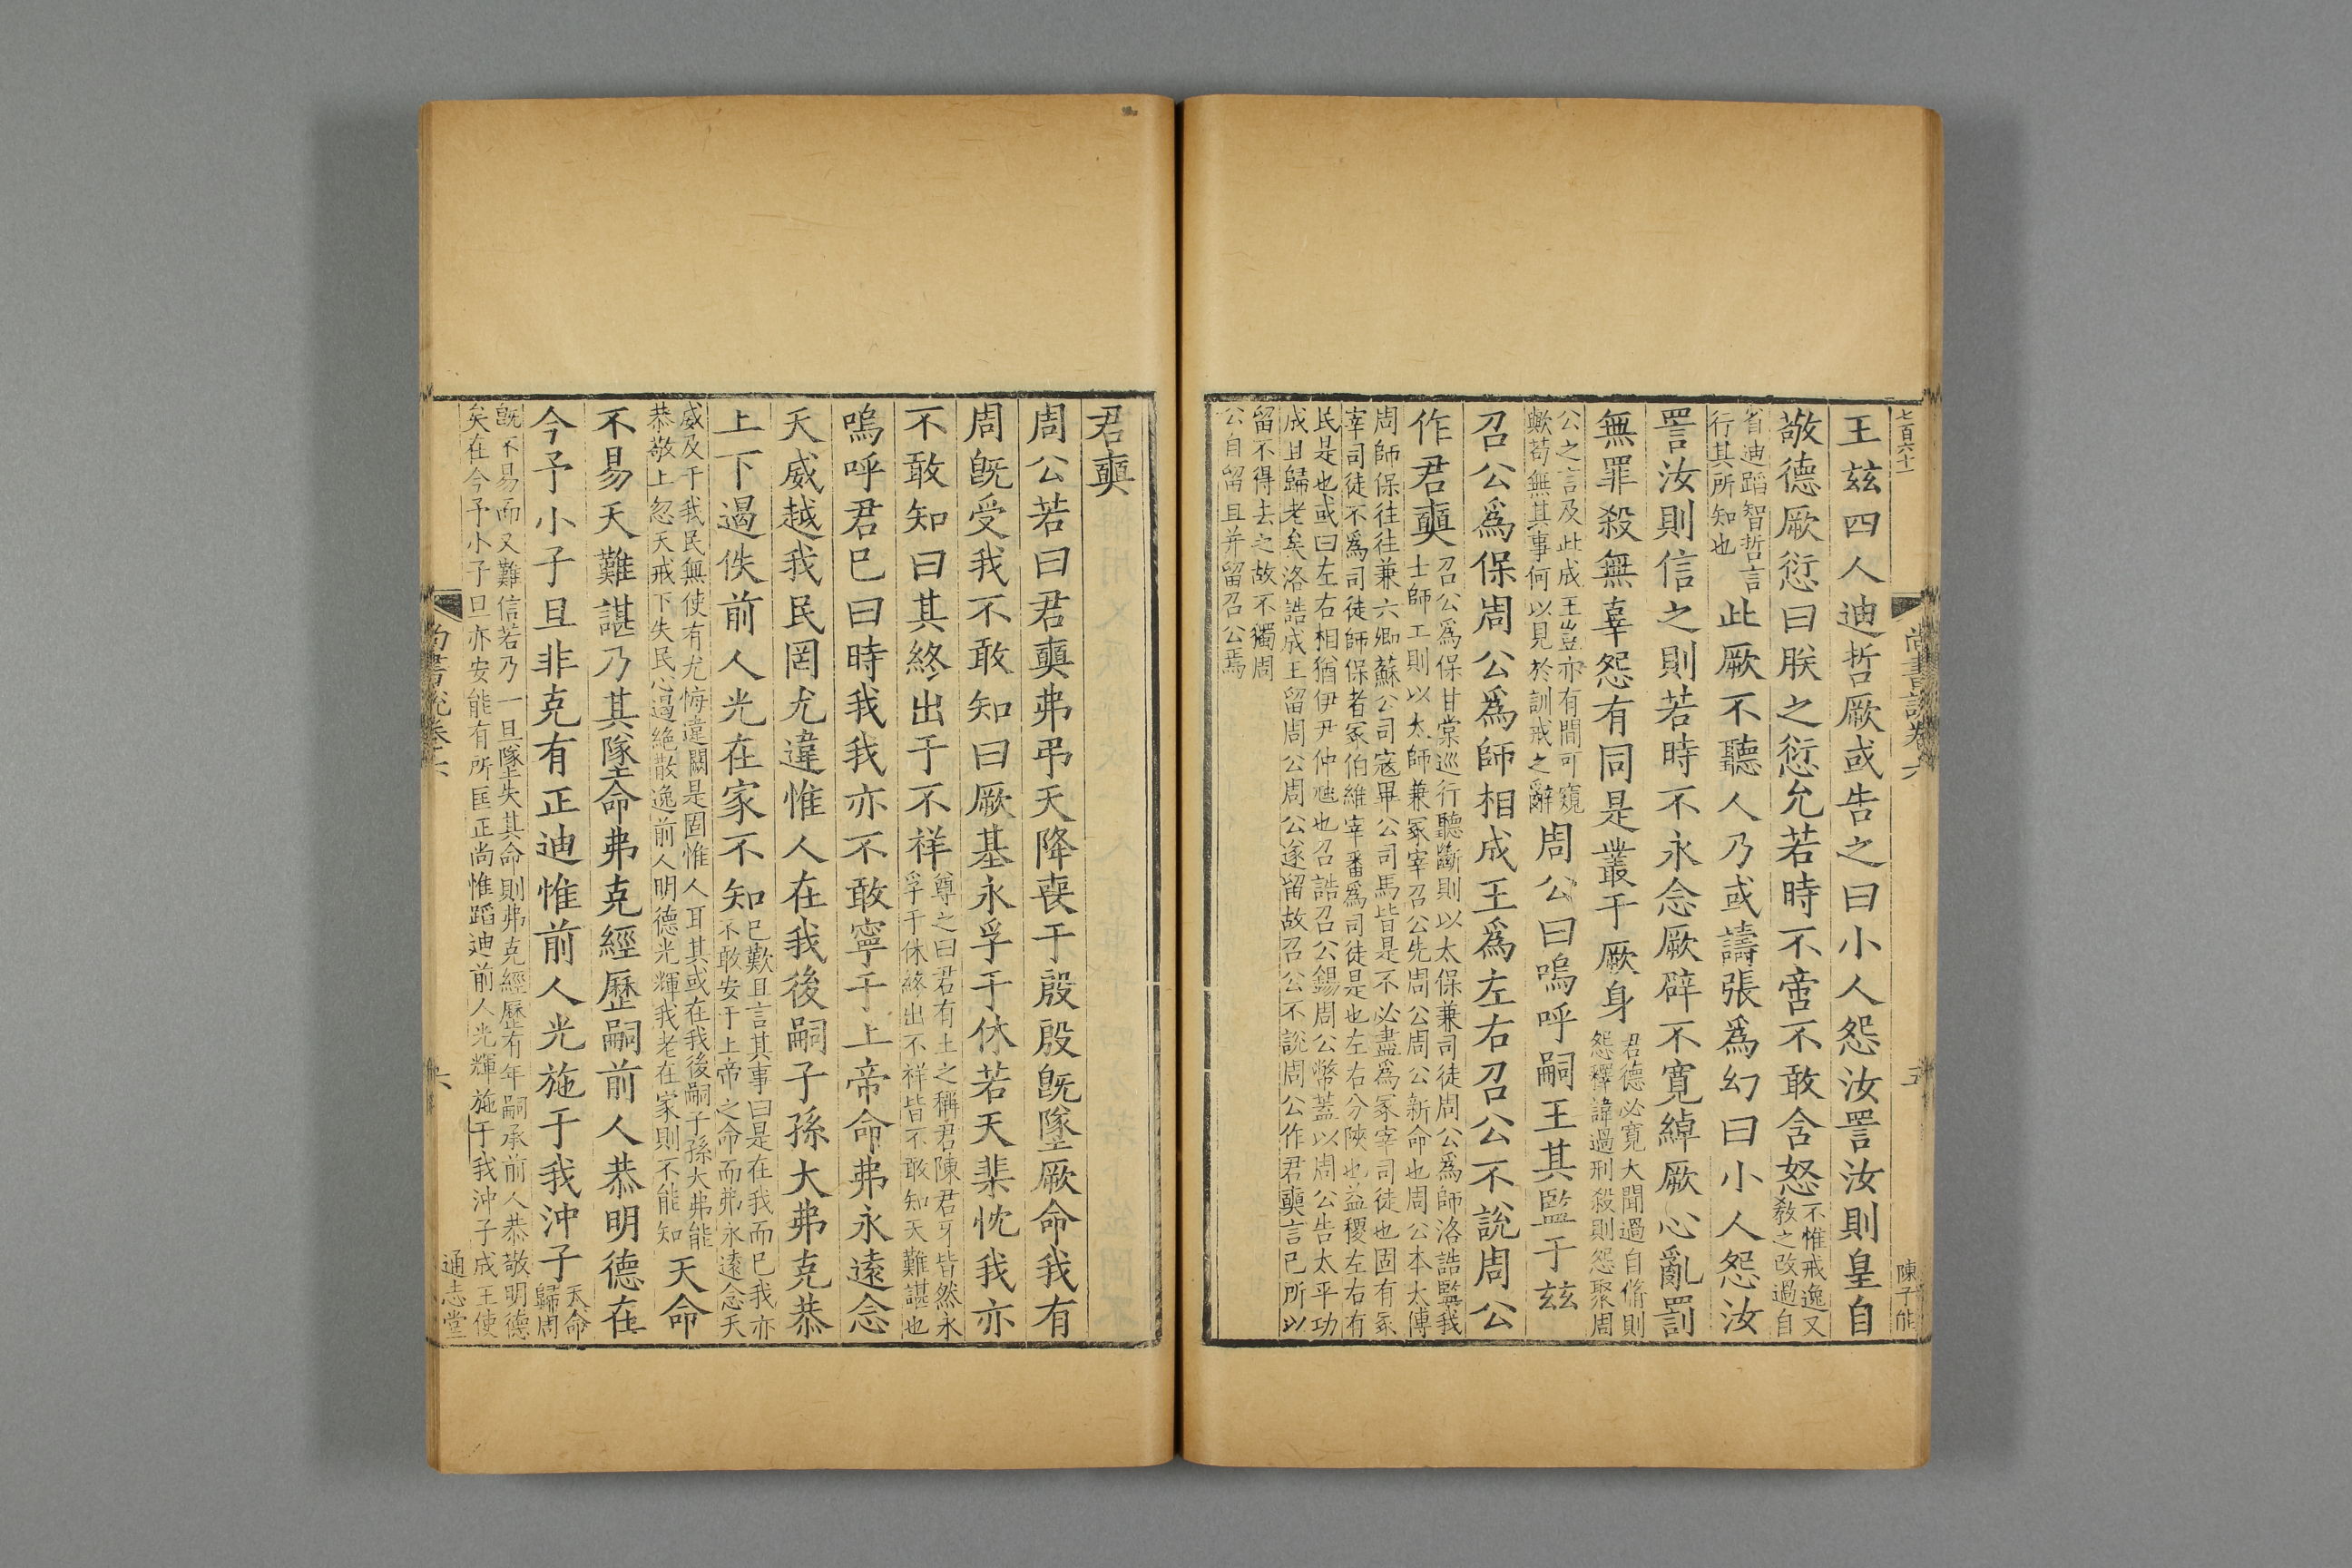 七百六十一
王兹四人迪哲厥或告之曰小人怨汝詈汝則皇自
敬德厥愆曰朕之愆允若時不啻不敢含怒不惟戒逸又
敎之改過自
省迪蹈智哲言
行其所知也此厥不聽人乃或譸張爲幻曰小人怨汝
詈汝則信之則若時不永念厥辟不寬綽厥心亂罰
無罪殺無辜怨有同是叢于厥身君德必寬大聞過自脩則
怨釋諱過刑殺則怨聚周
公之言及此成王豈亦有間可窺
歟苟無其事何以見於訓戒之辭周公曰嗚呼嗣王其監于兹
召公爲保周公爲師相成王爲左右召公不說周公
作君奭召公爲保甘棠巡行聽斷則以太保兼司徒周公爲師洛誥監我
士師工則以太師兼冢宰召公先周公周公新命也周公本太傅
周師保往往兼六卿蘇公司寇畢公司馬皆是不必盡爲冢宰司徒也固有冢
宰司徒不爲司徒師保者冢伯維宰番爲司徒是也左右分陝也益稷左右有
民是也或曰左右相猶伊尹仲虺也召誥召公錫周公幣蓋以周公告太平功
成且歸老矣洛誥成王留周公周公遂留故召公不說周公作君奭言已所以
留不得去之故不獨周
公自留且并留召公焉
尚書說卷六
五
陳子能
君奭
周公若曰君奭弗弔天降喪于殷殷旣墜厥命我有
周旣受我不敢知曰厥基永孚于休若天棐忱我亦
不敢知曰其終出于不祥尊之曰君有土之稱君陳君牙皆然永
孚于休終出不祥皆不敢知天難諶也
嗚呼君已曰時我我亦不敢寧于上帝命弗永遠念
天威越我民罔尤違惟人在我後嗣子孫大弗克恭
上下遏佚前人光在家不知已歎且言其事曰是在我而已我亦
不敢安于上帝之命而弗永遠念天
威及于我民無使有尤悔違闕是固惟人耳其或在我後嗣子孫大弗能
恭敬上忽天戒下失民心遏絶散逸前人明德光輝我老在家則不能知天命
不易天難諶乃其墜命弗克經歷嗣前人恭明德在
今予小子旦非克有正迪惟前人光施于我沖子天命
歸周
旣不易而又難信若乃一旦墜失其命則弗克經歷有年嗣承前人恭敬明德
矣在今予小子旦亦安能有所匡正尚惟蹈迪前人光輝施于我沖子成王使
尚書說卷六
六
通志堂